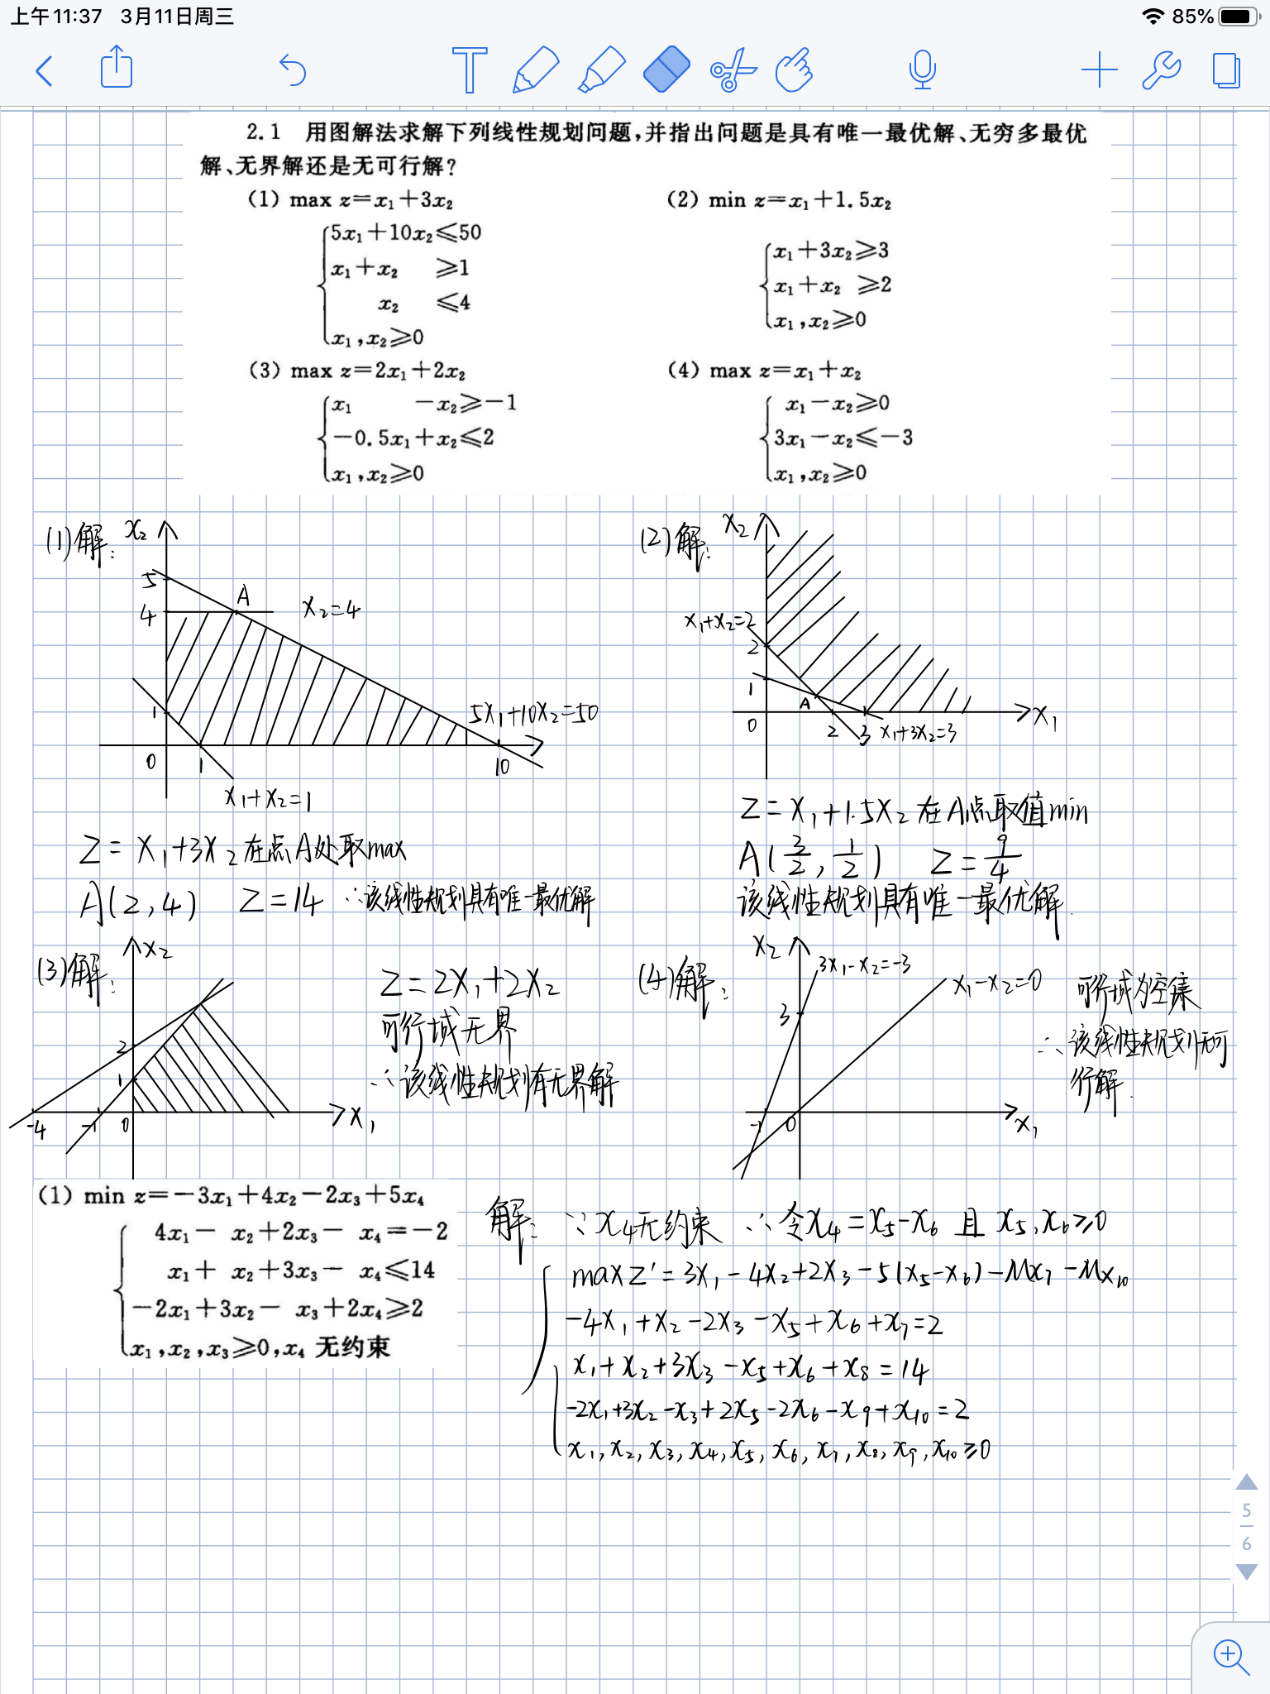 上午11:37 3月11日周三
85%
2.1 用图解法求解下列线性规划问题,并指出问题是具有唯一最优解、无穷多最优
解、无界解还是无可行解?
(1) max z=x₁+3x₂
5x₁+10x₂≤50
x₁+x₂ ≥1
x₂ ≤4
x₁,x₂≥0
(2) min z=x₁+1.5x₂
x₁+3x₂≥3
x₁+x₂ ≥2
x₁,x₂≥0
(3) max z=2x₁+2x₂
x₁ -x₂≥-1
-0.5x₁+x₂≤2
x₁,x₂≥0
(4) max z=x₁+x₂
x₁-x₂≥0
3x₁-x₂≤-3
x₁,x₂≥0
(1)解:
x₂
5
4
A
x₂=4
1
5x₁+10x₂=50
0
1
10
x₁+x₂=1
Z=x₁+3x₂在点A处取max
A(2,4) Z=14 ∴该线性规划具有唯一最优解
(2)解:
x₂
x₁+x₂=2
2
1
A
0
2
3
x₁+3x₂=3
x₁
Z=x₁+1.5x₂在A点取值min
A(3/2,1/2) Z=9/4
该线性规划具有唯一最优解.
(3)解:
x₂
2
1
-4
-1
0
x₁
Z=2x₁+2x₂
可行域无界
∴该线性规划有无界解
(4)解:
x₂
3x₁-x₂=-3
x₁-x₂=0
3
-1
0
x₁
可行域为空集
∴该线性规划无可
行解.
(1) min z=-3x₁+4x₂-2x₃+5x₄
4x₁- x₂+2x₃- x₄=-2
x₁+ x₂+3x₃- x₄≤14
-2x₁+3x₂- x₃+2x₄≥2
x₁,x₂,x₃≥0,x₄ 无约束
解: ∵x₄无约束 ∴令x₄=x₅-x₆ 且 x₅,x₆≥0
max Z'=3x₁-4x₂+2x₃-5(x₅-x₆)-Mx₇-Mx₁₀
-4x₁+x₂-2x₃-x₅+x₆+x₇=2
x₁+x₂+3x₃-x₅+x₆+x₈=14
-2x₁+3x₂-x₃+2x₅-2x₆-x₉+x₁₀=2
x₁,x₂,x₃,x₄,x₅,x₆,x₇,x₈,x₉,x₁₀≥0
5
6